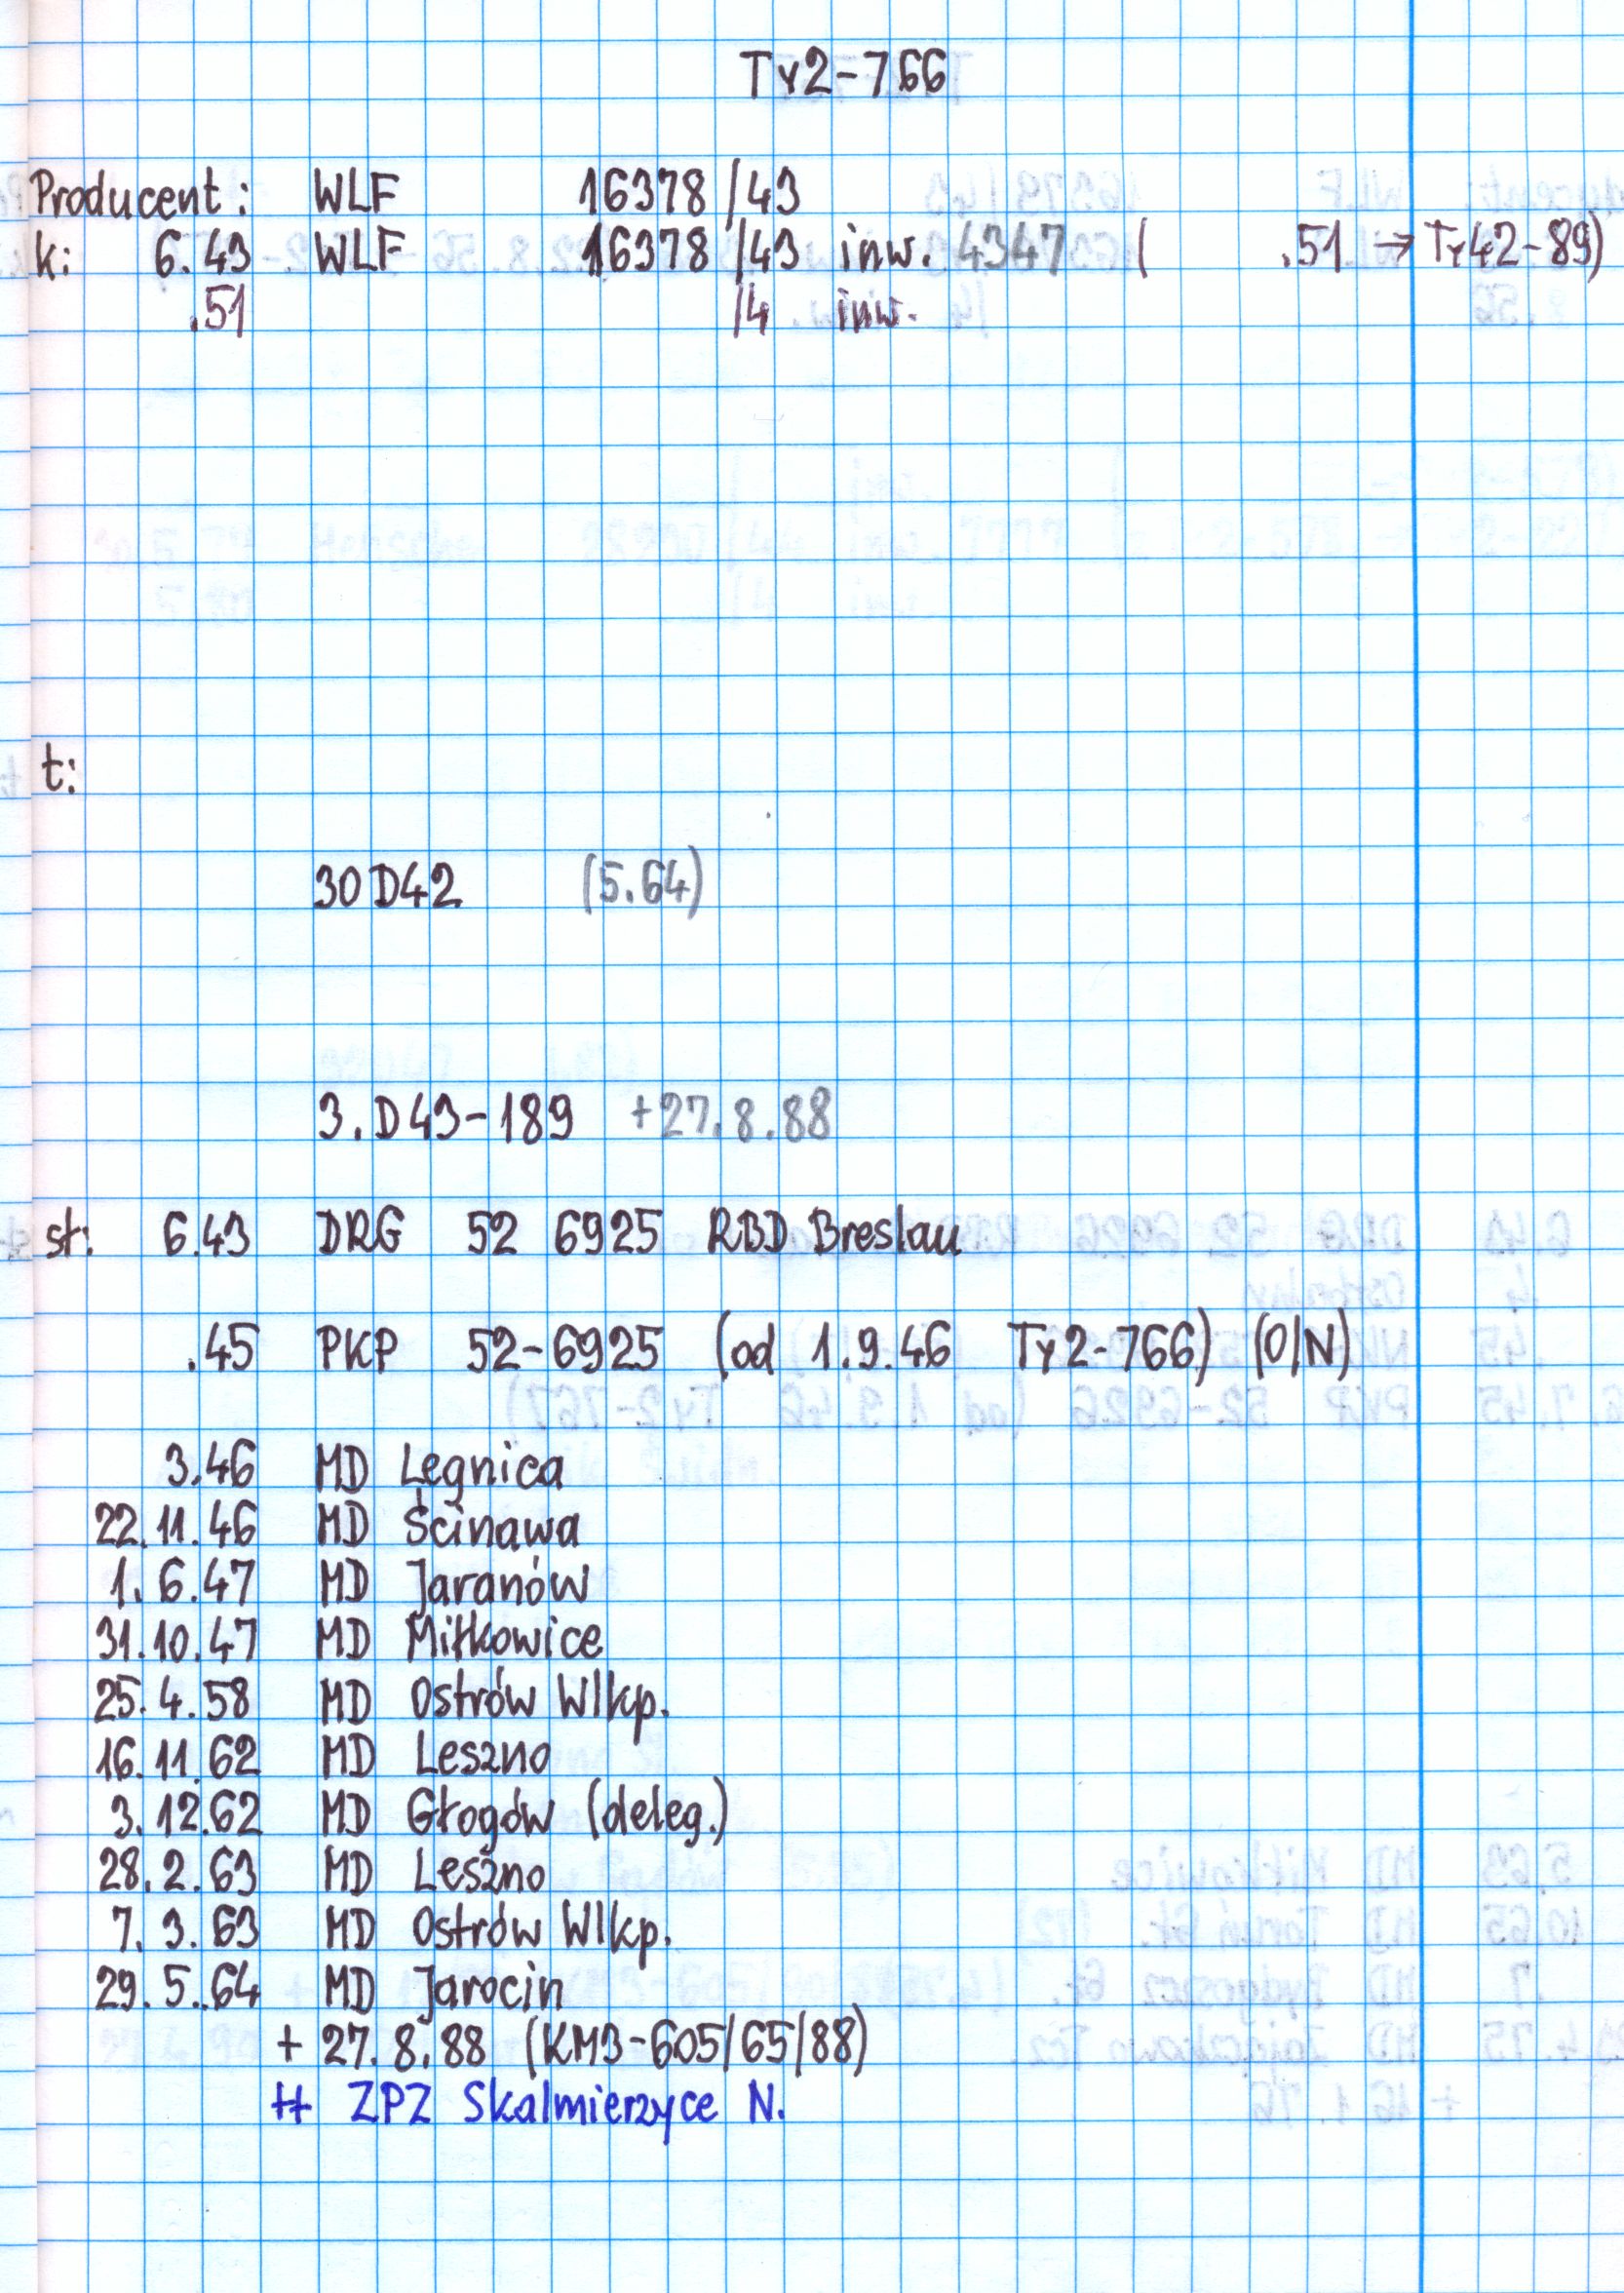 Ty2-766
Producent: WLF 16378/43
k: 6.43 WLF 16378/43 inw. 4347 ( .51 → Ty42-89)
.51 /4 inw.
t:
30D42 (5.64)
3.D43-189 +27.8.88
st: 6.43 DRG 52 6925 RBD Breslau
.45 PKP 52-6925 (od 1.9.46 Ty2-766) (O/N)
3.46 MD Legnica
22.11.46 MD Ścinawa
1.6.47 MD Jaranów
31.10.47 MD Miłkowice
25.4.58 MD Ostrów Wlkp.
16.11.62 MD Leszno
3.12.62 MD Głogów (deleg.)
28.2.63 MD Leszno
7.3.63 MD Ostrów Wlkp.
29.5.64 MD Jarocin
+ 27.8.88 (KM3-605/65/88)
++ ZPZ Skalmierzyce N.